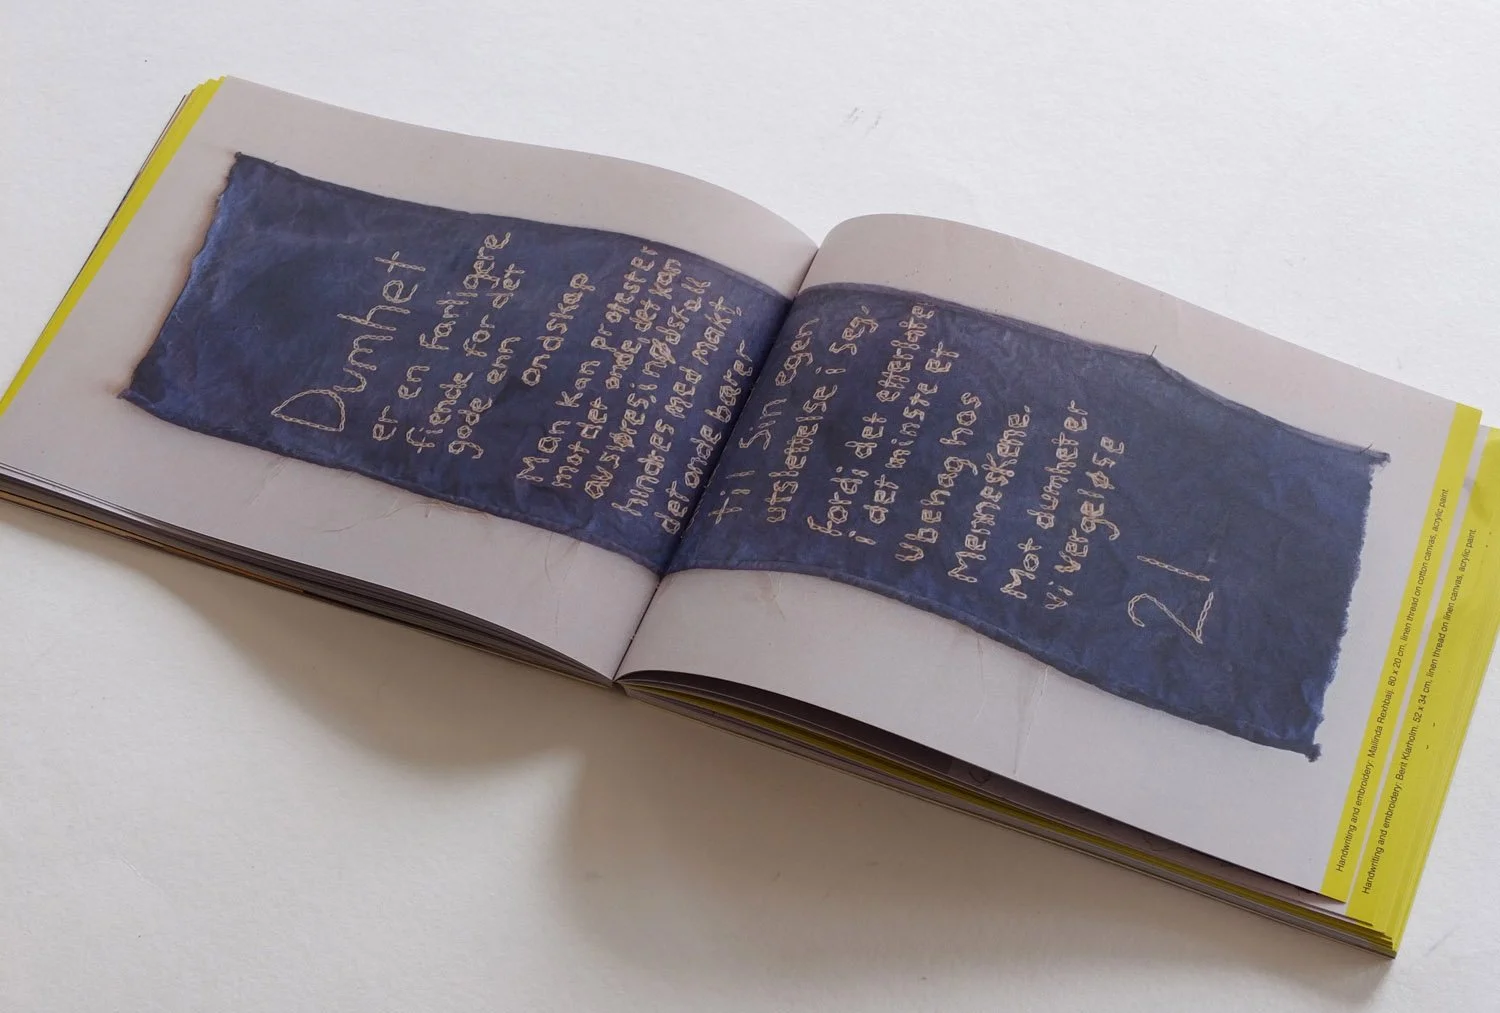 Dumhet
er en farligere
fiende for det
gode enn det
ondskap
Man kan protester
mot det onde, det kan
avsløres, i nødsfall
hindres med makt,
det onde bærer
til sin egen
utslettelse i seg,
fordi det etterlater
i det minste et
ubehag hos
Menneskene.
Mot dumheter
vi vergeløse
21
Handwriting and embroidery: Malinda Rexhbaij. 80 x 20 cm, linen thread on cotton canvas, acrylic paint
Handwriting and embroidery: Berit Klarholm. 52 x 34 cm, linen thread on linen canvas, acrylic paint